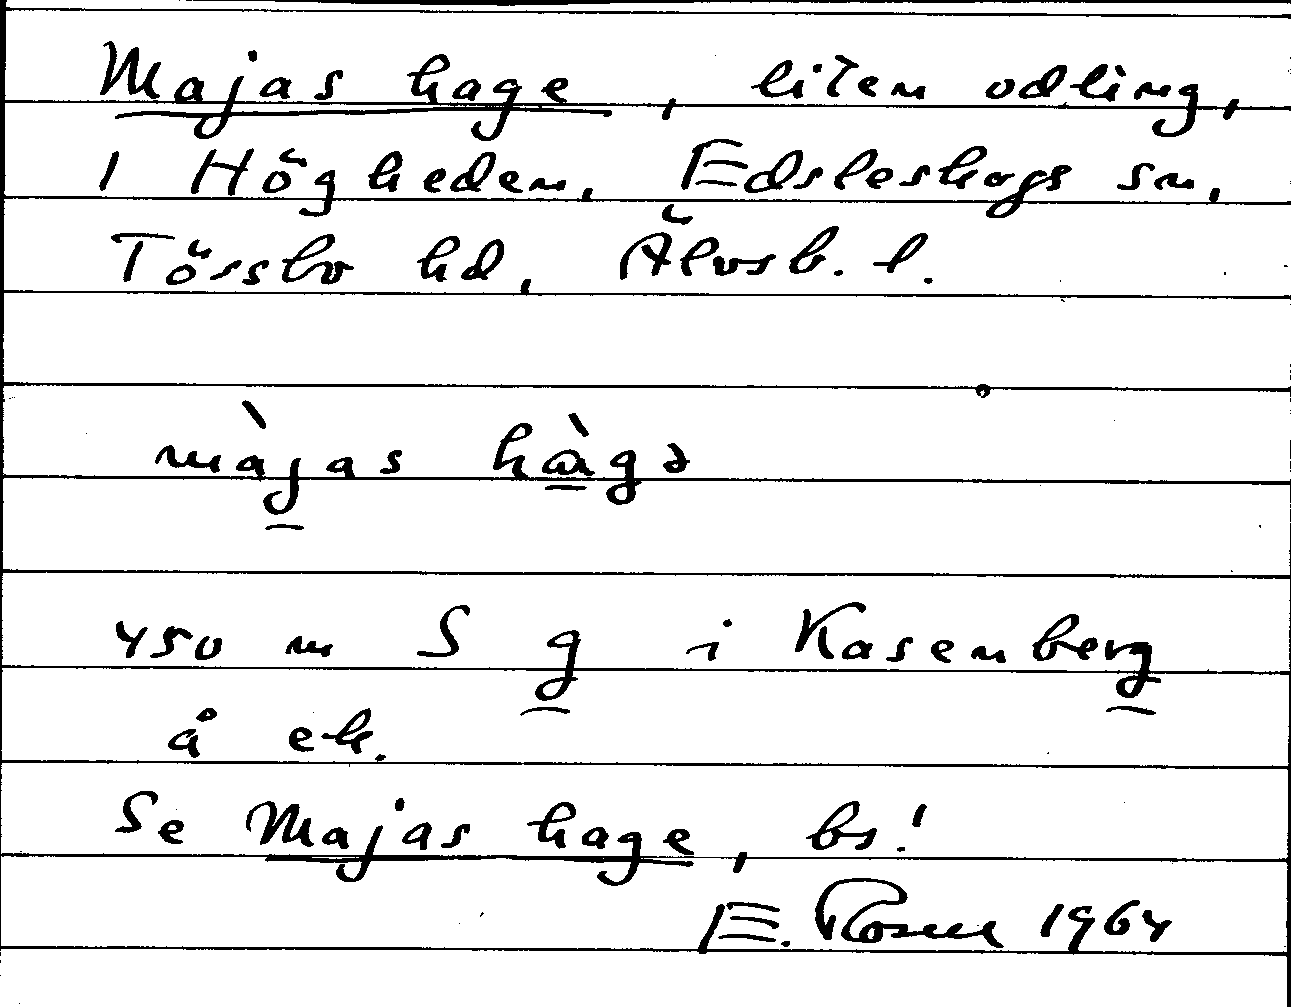 Majas hage, liten odling,
i Högheden, Edsleskogs sn,
Tössbo hd, Älvsb. l.
màjas hàgə
450 m S g i Kasenberg
å ek.
Se Majas hage, bs!
E. Rosell 1964